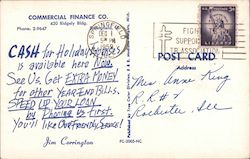 COMMERCIAL FINANCE CO.
620 Ridgely Bldg.
Phone: 2-9647
CASH for Holiday Expenses
is available here Now.
See Us. Get EXTRA MONEY
for other YEAR-END BILLS.
SPEED UP YOUR LOAN
by Phoning Us First.
You'll like Our Friendly Service!
Jim Corrington
PC-2005-NC
FIGHT
SUPPORT
TB ASSOCIATION
POST CARD
Address
Mrs Anne King
R.R # 2
Rochester, Ill